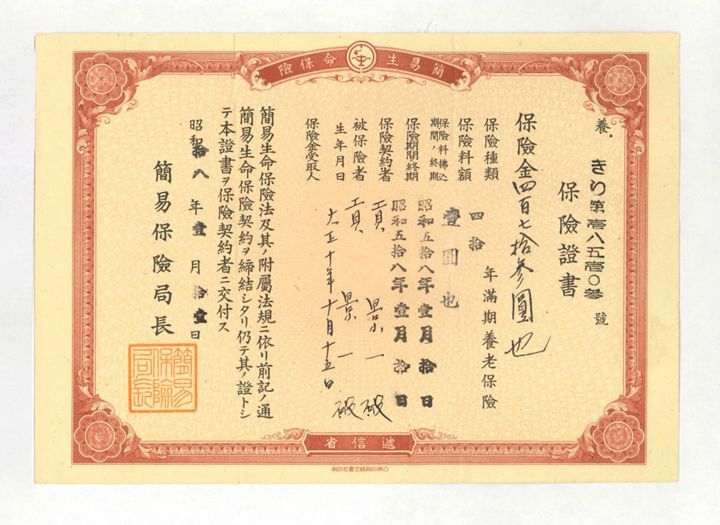 簡易生命保險
養.
きり第壹八五壹〇參號
保險證書
保險金四百七拾參圓也
保險種類 四拾年滿期養老保險
保險料額 壹圓也
保險料拂込期間ノ終期 昭和五拾八年壹月拾日
保險期間終期 昭和五拾八年壹月拾日
保險契約者 景一
被保險者 景一
生年月日 大正十年十月十五日
保險金受取人
簡易生命保險法及其ノ附屬法規ニ依リ前記ノ通
簡易生命保險契約ヲ締結シタリ仍テ其ノ證トシ
テ本證書ヲ保險契約者ニ交付ス
昭和拾八年壹月拾壹日
簡易保險局長
簡易保險局長
遞信省